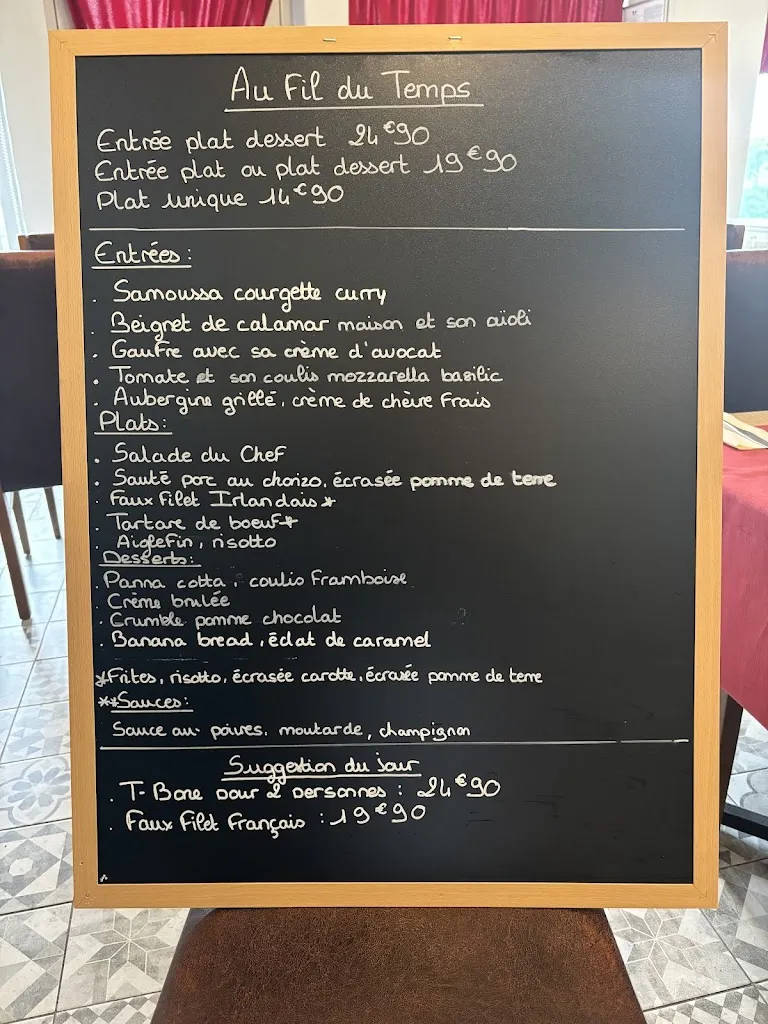 Au Fil du Temps
Entrée plat dessert 24€90
Entrée plat ou plat dessert 19€90
Plat unique 14€90
Entrées:
. Samoussa courgette curry
. Beignet de calamar maison et son aïoli
. Gaufre avec sa crème d'avocat
. Tomate et son coulis mozzarella basilic
. Aubergine grillé, crème de chèvre frais
Plats:
. Salade du Chef
. Sauté porc au chorizo, écrasée pomme de terre
. Faux Filet Irlandais*
. Tartare de boeuf*
. Aiglefin, risotto
Desserts:
. Panna cotta, coulis Framboise
. Crème brulée
. Crumble pomme chocolat
. Banana bread, éclat de caramel
*Frites, risotto, écrasée carotte, écrasée pomme de terre
**Sauces:
Sauce au poivres, moutarde, champignon
Suggestion du jour
. T-Bone pour 2 personnes : 24€90
. Faux Filet Français : 19€90